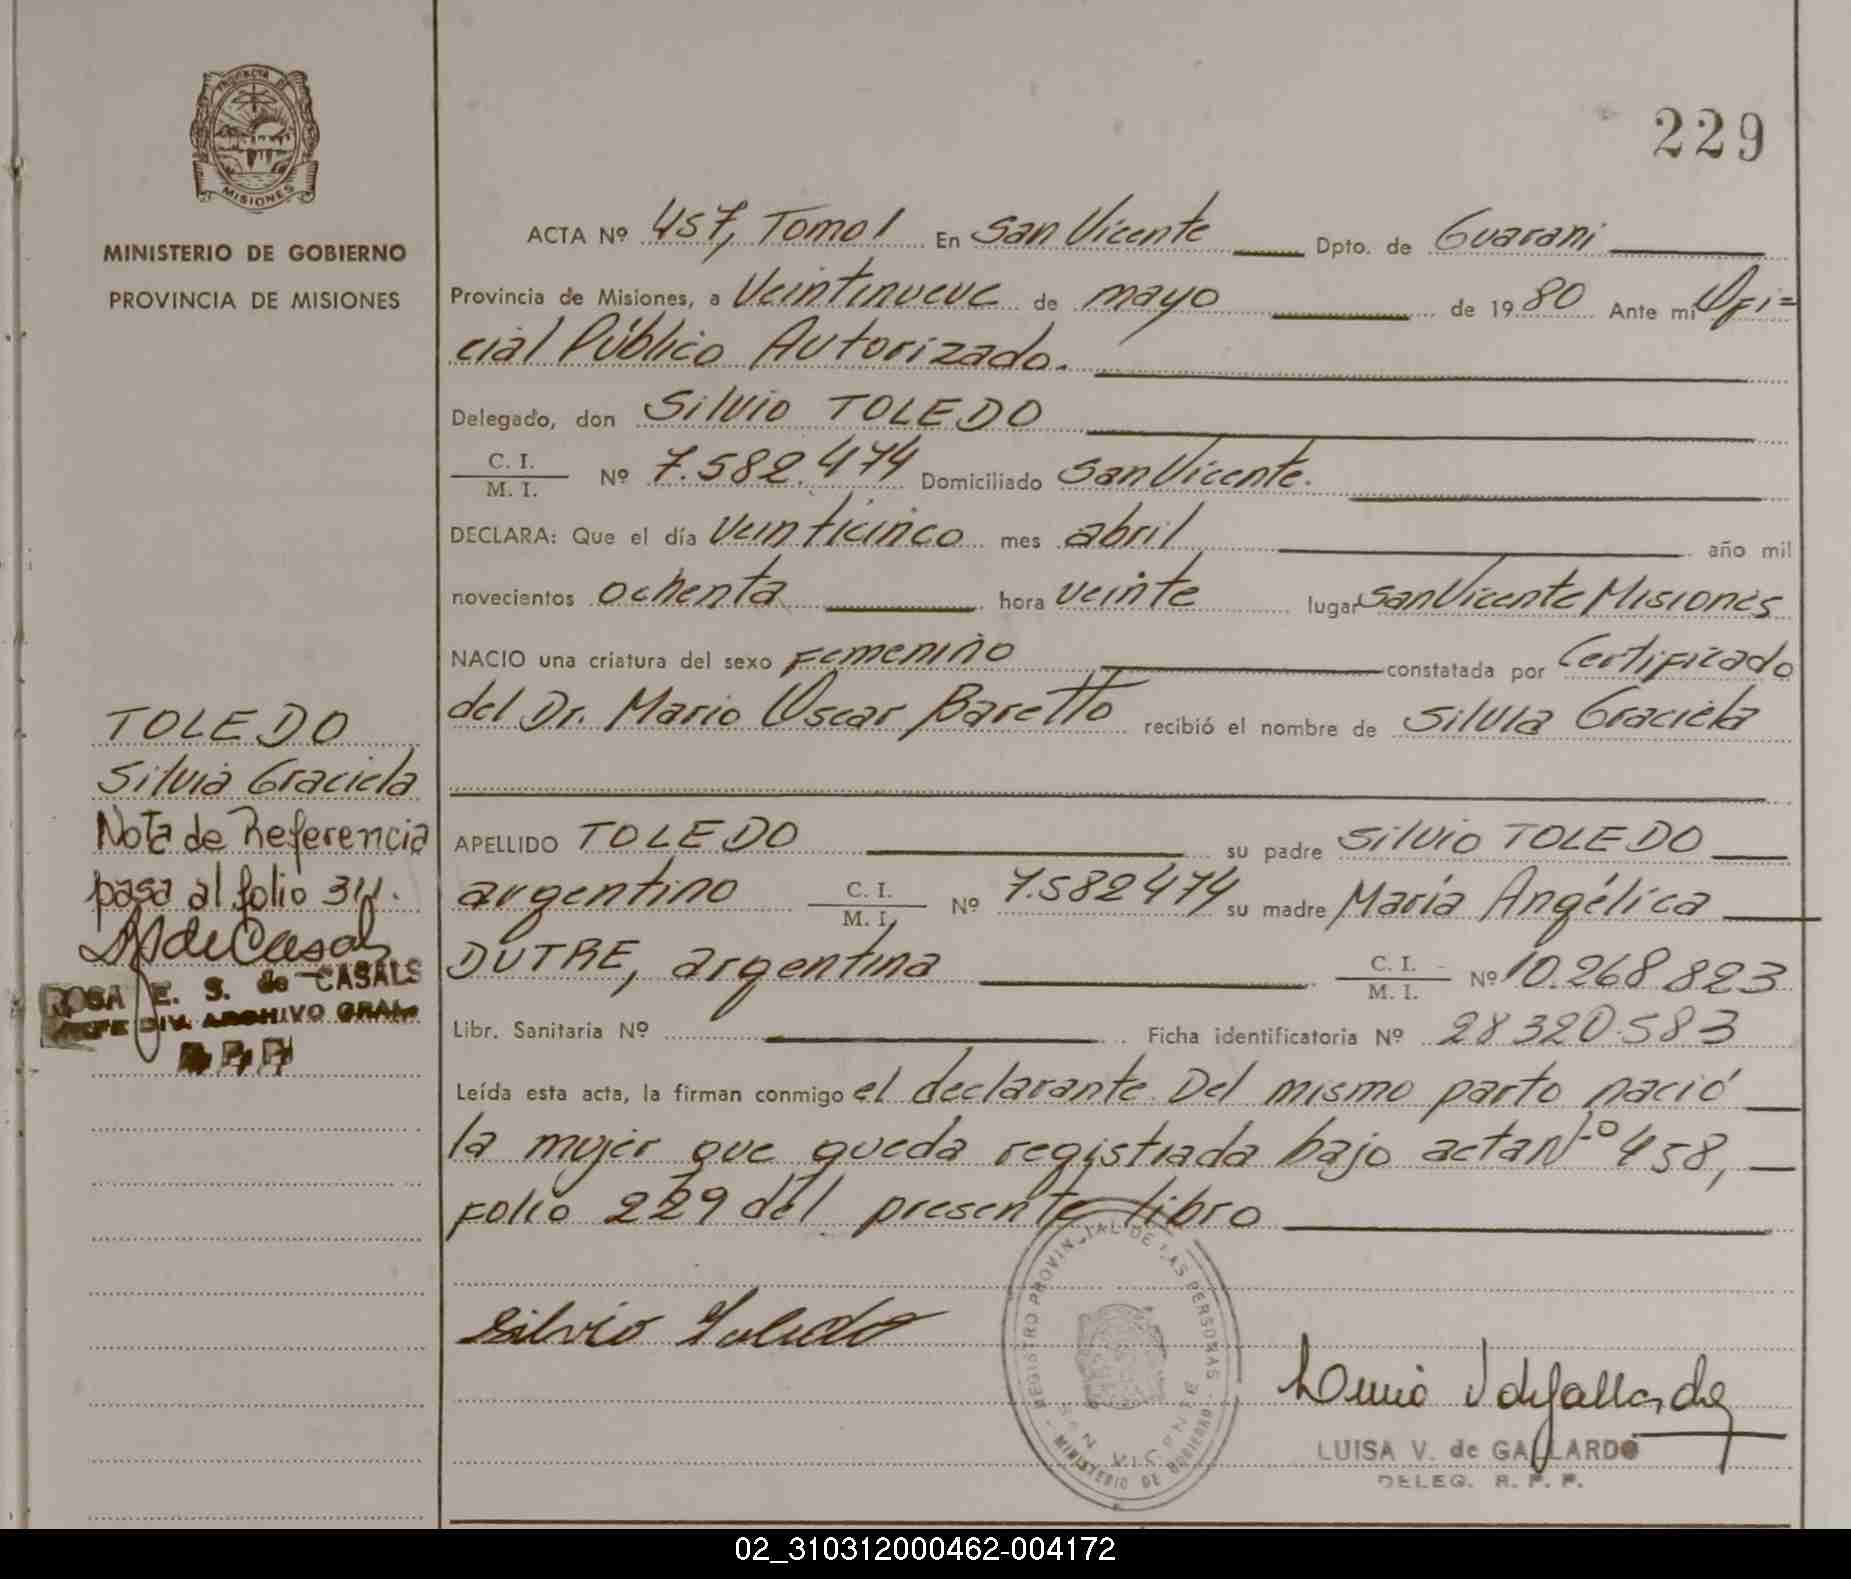 PROVINCIA DE
MISIONES
MINISTERIO DE GOBIERNO
PROVINCIA DE MISIONES
229
ACTA Nº 457, Tomo I En San Vicente Dpto. de Guarani
Provincia de Misiones, a Veintinueve de mayo de 1980 Ante mi Ofi=
cial Público Autorizado.
Delegado, don Silvio TOLEDO
C. I.
M. I. Nº 7.582.474 Domiciliado San Vicente.
DECLARA: Que el día veinticinco mes abril año mil
novecientos ochenta hora veinte lugar San Vicente Misiones
NACIO una criatura del sexo Femenino constatada por Certificado
del Dr. Mario Oscar Baretto recibió el nombre de Silvia Graciela
APELLIDO TOLEDO su padre Silvio TOLEDO
argentino C. I.
M. I. Nº 7.582474 su madre María Angélica
DUTRE, argentina C. I.
M. I. Nº 10.268.823
Libr. Sanitaria Nº Ficha identificatoria Nº 28320.583
Leída esta acta, la firman conmigo el declarante. Del mismo parto nació
la mujer que queda registrada bajo acta Nº 458,
Folio 229 del presente libro
TOLEDO
Silvia Graciela
Nota de Referencia
pasa al folio 314.
ROSA E. S. de CASALS
JEFE DIV. ARCHIVO GRAL.
Silvio Toledo
REGISTRO PROVINCIAL DE LAS PERSONAS
MINISTERIO DE GOBIERNO
LUISA V. de GALLARDO
DELEG. R. P. P.
02_310312000462-004172